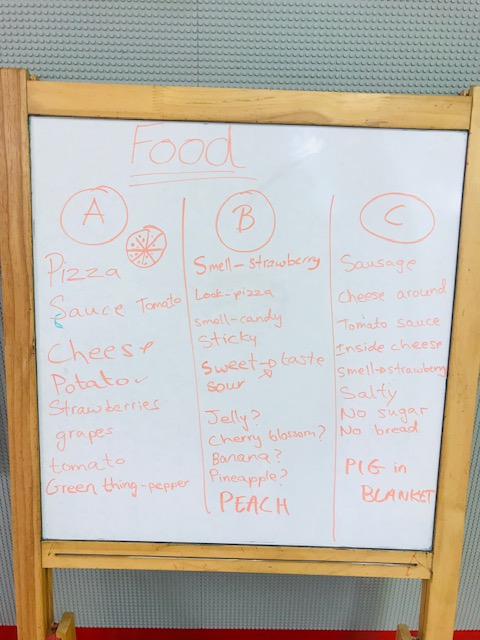 Food
A
Pizza
Sauce Tomato
Cheese
Potato
Strawberries
grapes
tomato
Green thing-pepper
B
Smell-strawberry
Look-pizza
smell-candy
Sticky
Sweet→taste
sour
Jelly?
Cherry blossom?
Banana?
Pineapple?
PEACH
C
Sausage
Cheese around
Tomato sauce
Inside cheese
Smell→strawberry
Salty
No sugar
No bread
PIG in
BLANKET